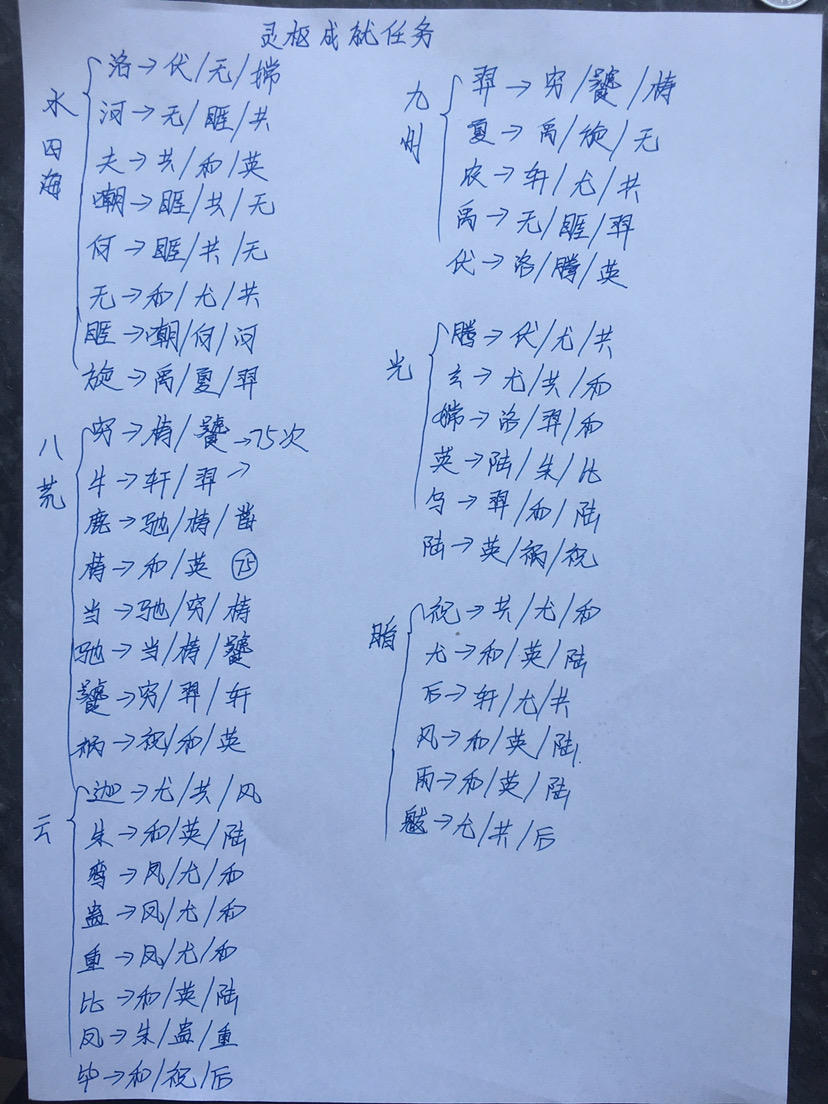 灵枢成就任务
水四海
洛→伏/无/嫦
河→无/睚/共
夫→共/和/英
嘲→睚/共/无
何→睚/共/无
无→和/尤/共
睚→嘲/何/河
旋→禹/夏/羿
八荒
穷→梼/饕→75次
牛→轩/羿→
鹿→驰/梼/凿
梼→和/英 75
当→驰/穷/梼
驰→当/梼/饕
饕→穷/羿/轩
祸→祝/和/英
云
迦→尤/共/风
朱→和/英/陆
弯→凤/尤/和
蛊→凤/尤/和
重→凤/尤/和
比→和/英/陆
凤→朱/蛊/重
毕→和/祝/后
九州
羿→穷/饕/梼
夏→禹/旋/无
农→轩/尤/共
禹→无/睚/羿
伏→洛/腾/英
光
腾→伏/尤/共
玄→尤/共/和
嫦→洛/羿/和
英→陆/朱/比
乌→羿/和/陆
陆→英/祸/祝
暗
祝→共/尤/和
尤→和/英/陆
后→轩/尤/共
风→和/英/陆
雨→和/英/陆
魃→尤/共/后